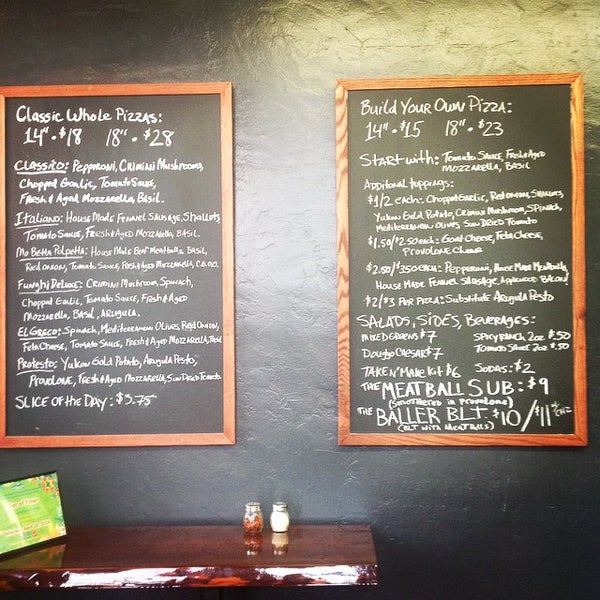 Classic Whole Pizzas:
14" · $18 18" · $28
Classico: Pepperoni, Crimini Mushrooms,
Chopped Garlic, Tomato Sauce,
Fresh & Aged Mozzarella, Basil.
Italiano: House Made Fennel Sausage, Shallots,
Tomato Sauce, Fresh & Aged Mozzarella, Basil.
Mo Betta Polpetta: House Made Beef Meatballs, Basil,
Red Onion, Tomato Sauce, Fresh & Aged Mozzarella,
Funghi Deluxe: Crimini Mushroom, Spinach,
Chopped Garlic, Tomato Sauce, Fresh & Aged
Mozzarella, Basil, Arugula.
El Greco: Spinach, Mediterranean Olives, Red Onion,
Feta Cheese, Tomato Sauce, Fresh & Aged Mozzarella, Basil
Protesto: Yukon Gold Potato, Arugula Pesto,
Provolone, Fresh & Aged Mozzarella, Sun Dried Tomato
Slice of the Day: $3.75
Build Your Own Pizza:
14" · $15 18" · $23
Start with: Tomato Sauce, Fresh & Aged
Mozzarella, Basil
Additional toppings:
$1/2 each: Chopped Garlic, Red Onion, Shallots,
Yukon Gold Potato, Crimini Mushroom, Spinach,
Mediterranean Olives, Sun Dried Tomato
$1.50/$2.50 each: Goat Cheese, Feta Cheese,
Provolone Cheese
$2.50/$3.50 each: Pepperoni, House Made Meatballs,
House Made Fennel Sausage, Applewood Bacon
$2/$3 Per Pizza: Substitute Arugula Pesto
Salads, Sides, Beverages:
Mixed Greens $7 Spicy Ranch 2oz $.50
Dougho Caesar $7 Tomato Sauce 2oz $.50
Take n' Make Kit $6 Sodas: $2
The Meatball Sub: $9
(Smothered in Provolone)
The Baller BLT $10/$11
(BLT with Meatballs)